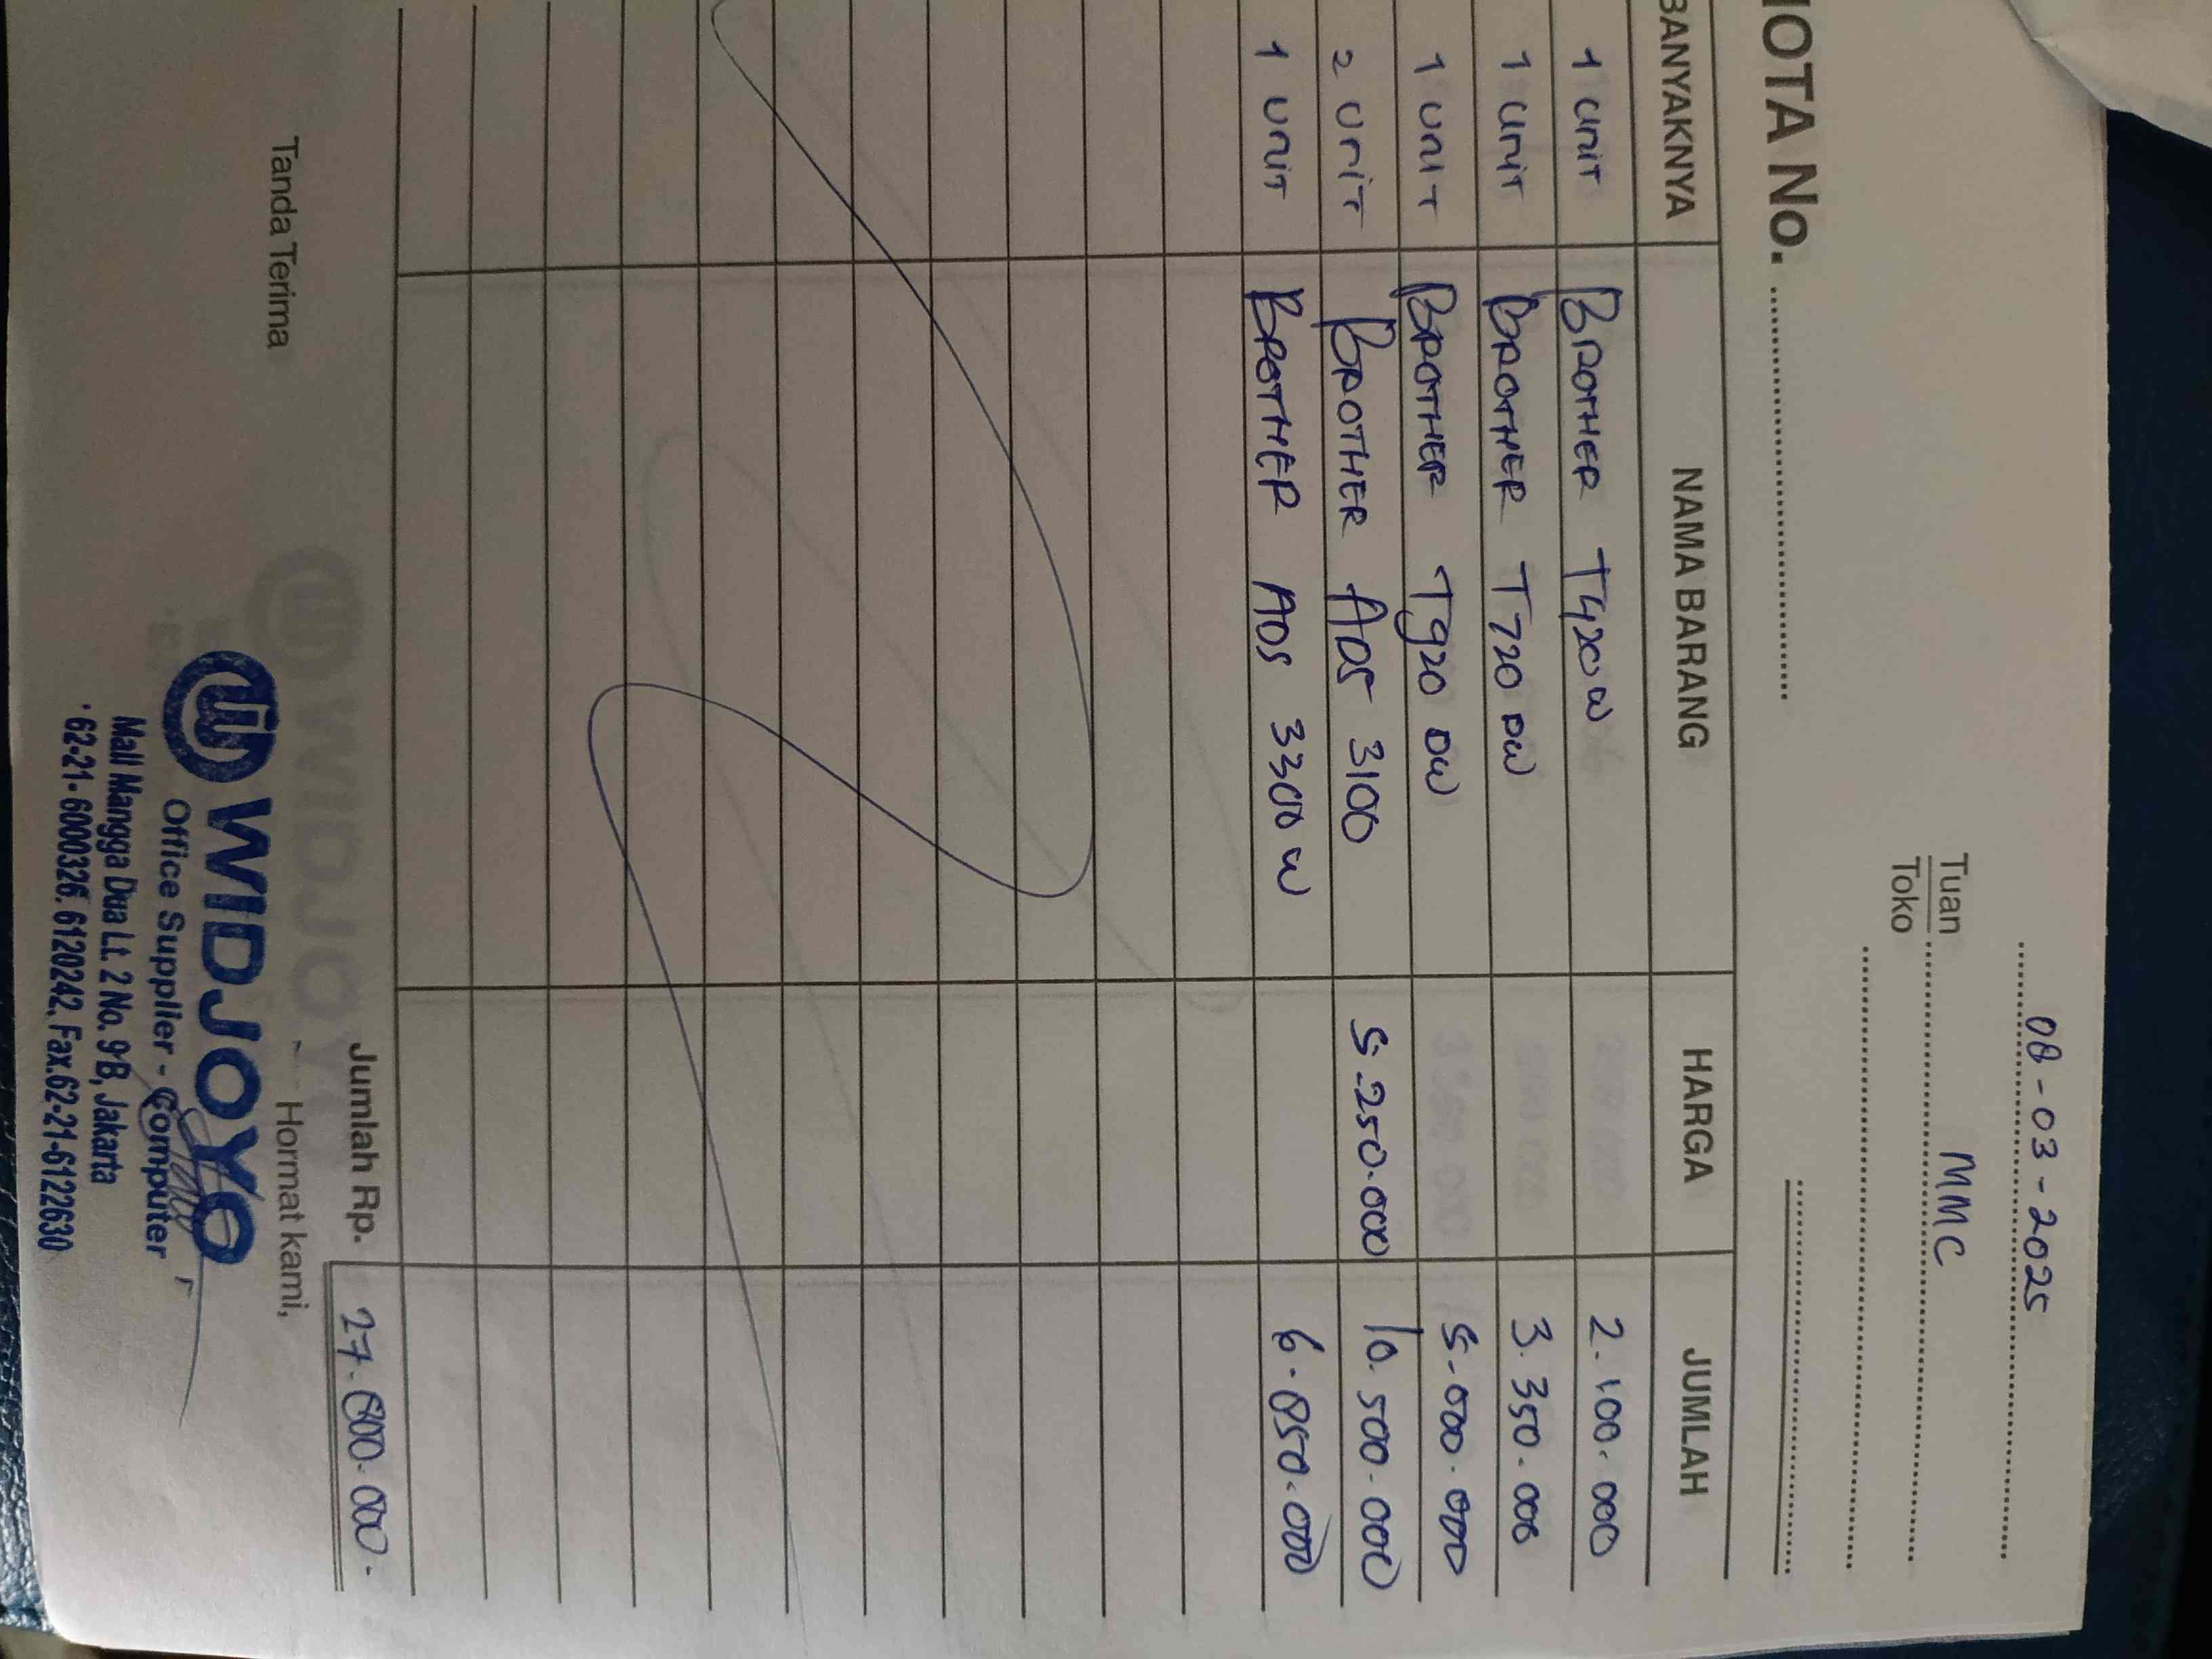 08-03-2025
Tuan MMC
Toko
NOTA No.
BANYAKNYA NAMA BARANG HARGA JUMLAH
1 Unit BROTHER T420W 2.100.000
1 Unit BROTHER T720 DW 3.350.000
1 Unit BROTHER T920 DW 5.000.000
2 Unit BROTHER ADS 3100 5.250.000 10.500.000
1 Unit BROTHER ADS 3300 W 6.850.000
Jumlah Rp. 27.800.000.
Tanda Terima Hormat kami,
WIDJOYO
Office Supplier - Computer
Mall Mangga Dua Lt. 2 No. 9B, Jakarta
62-21- 6000326, 6120242, Fax.62-21-6122630